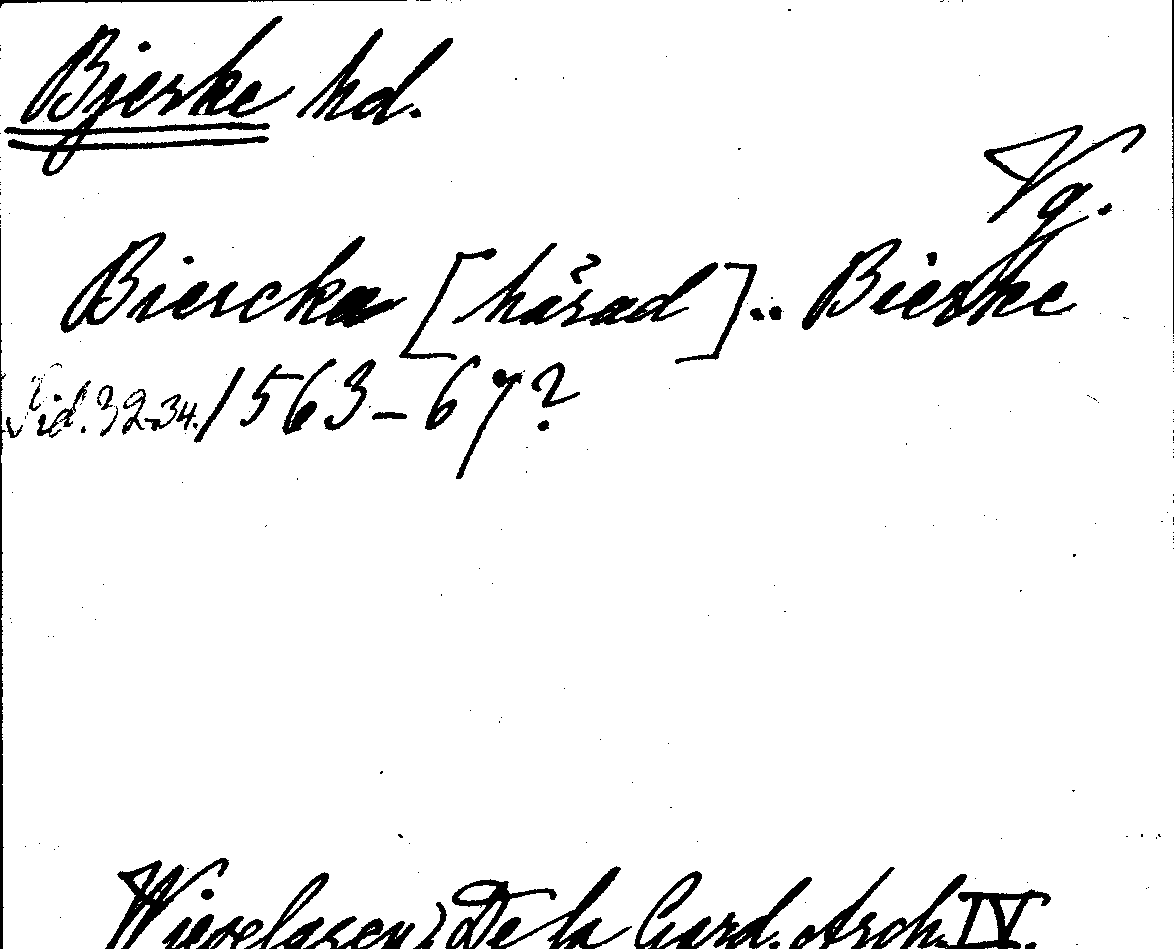 Bjerke hd.
Vg.
Biercka [härad].. Bierke
Sid. 32-34. 1563-67?
Wieselgren, De la Gard. Arch. IV.